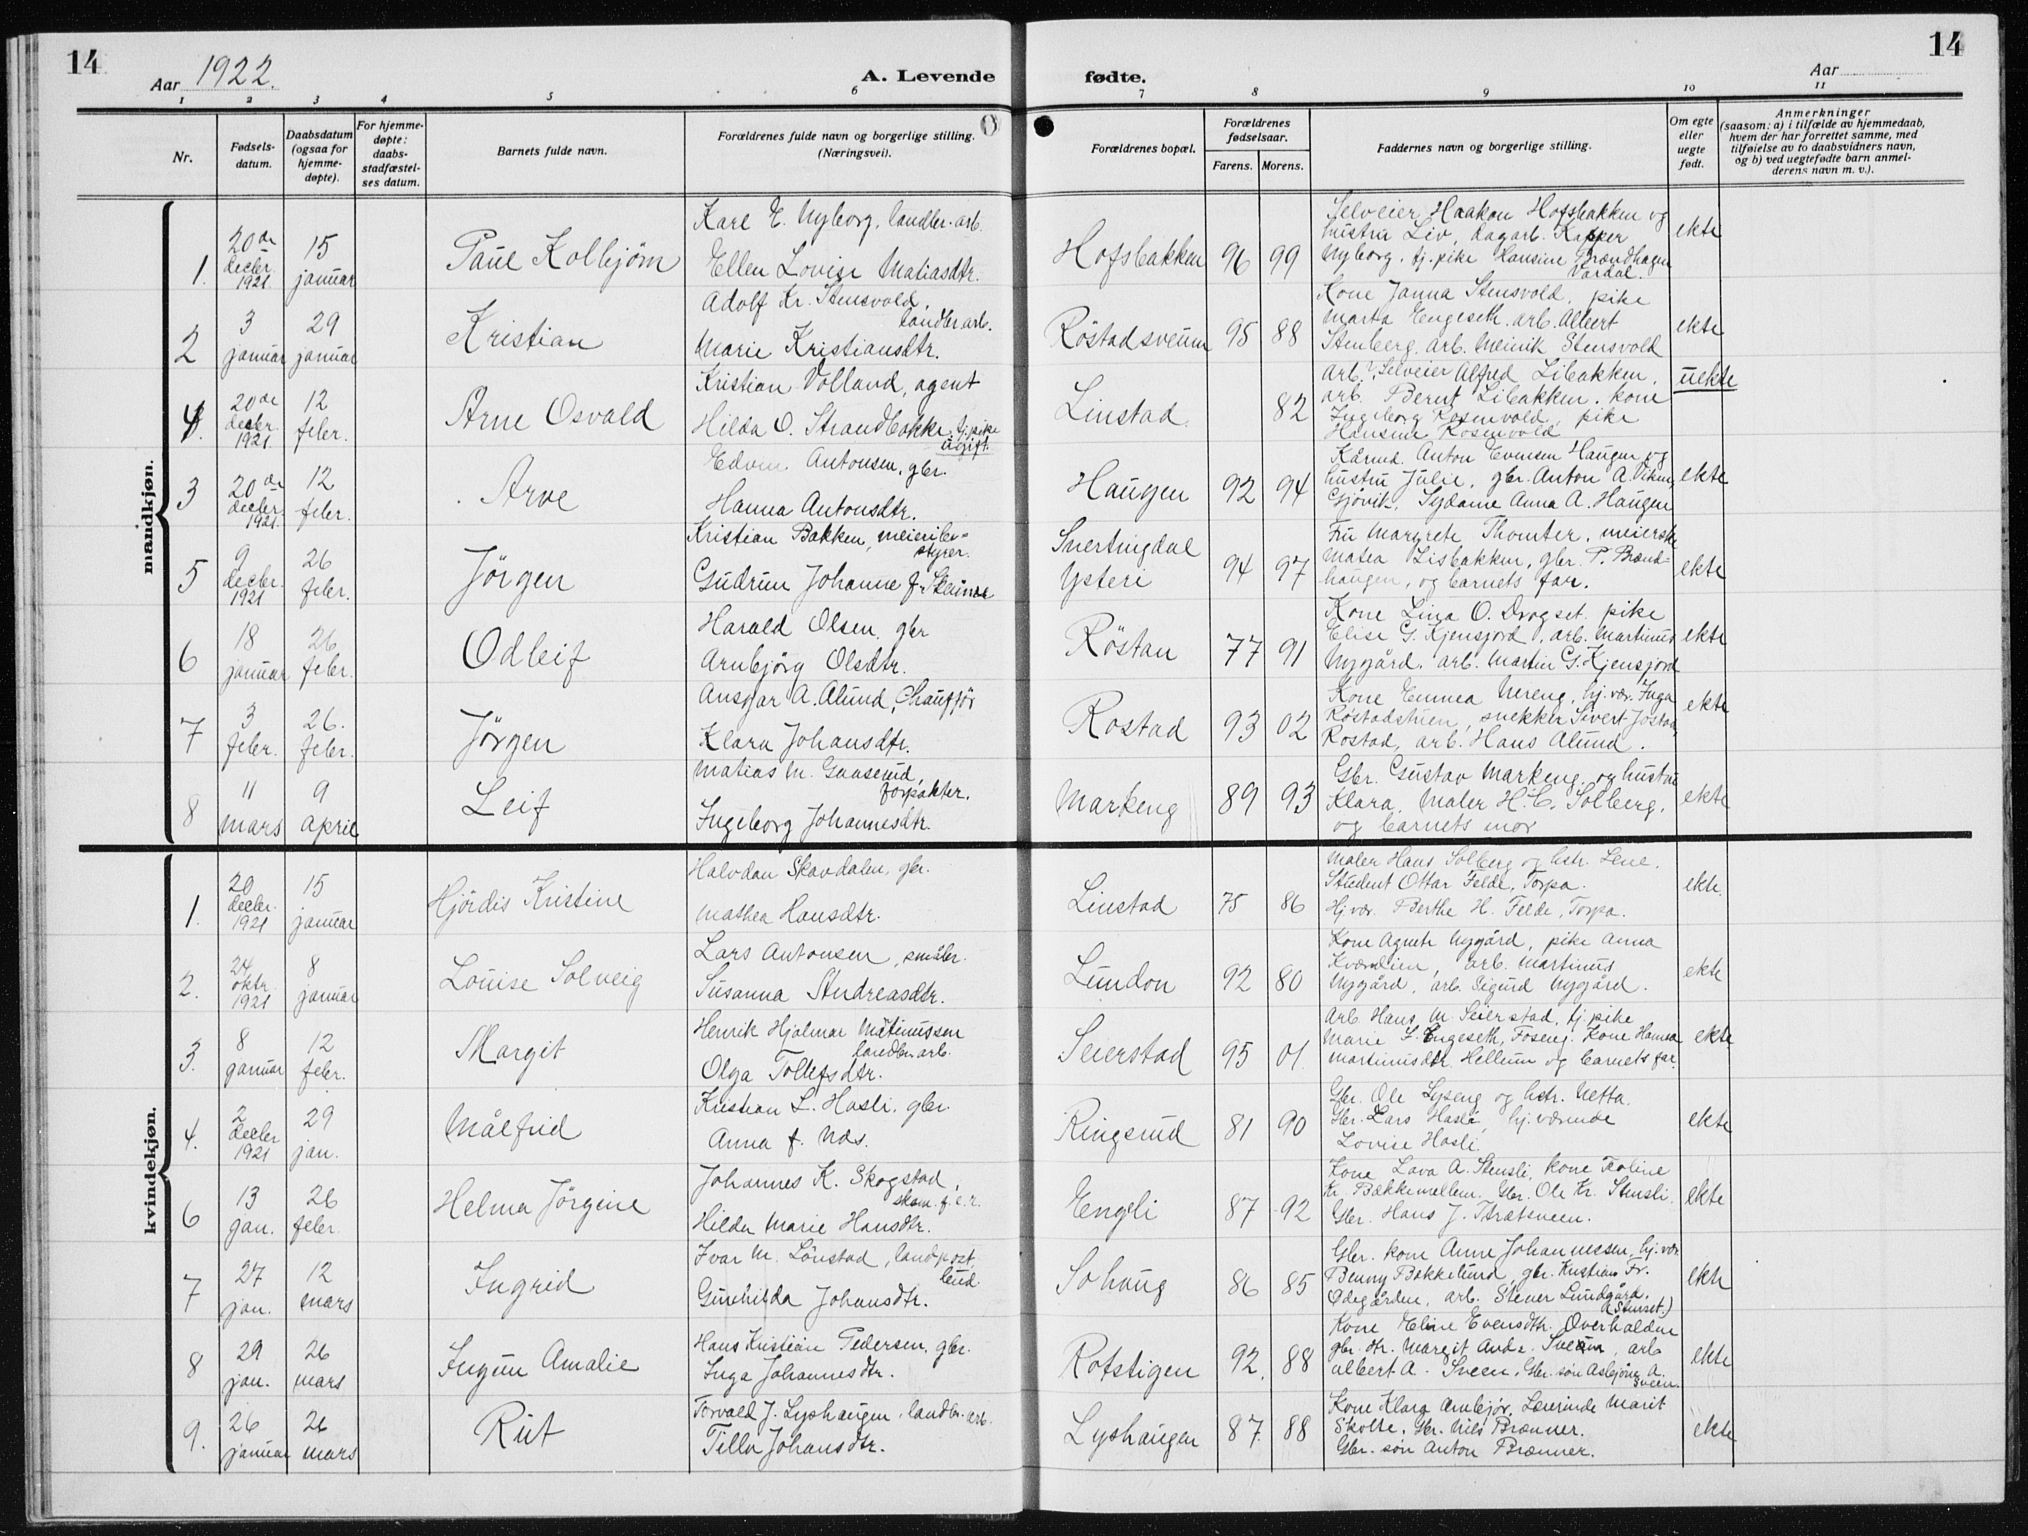 14
14
Aar 1922.
A. Levende fødte.
Aar
1 2 3 4 5 6 7 8 9 10 11
Nr.
Fødsels-
datum.
Daabsdatum
(ogsaa for
hjemme-
døpte).
For hjemme-
døpte:
daabs-
stadfæstel-
ses datum.
Barnets fulde navn.
Forældrenes fulde navn og borgerlige stilling.
(Næringsvei).
Forældrenes bopæl.
Forældrenes
fødselsaar.
Farens. Morens.
Faddernes navn og borgerlige stilling.
Om egte
eller
uegte
født.
Anmerkninger
(saasom: a) i tilfælde av hjemmedaab,
hvem der har forrettet samme, med
tilføielse av to daabsvidners navn,
og b) ved uegtefødte barn anmel-
derens navn m. v.).
mandkjøn.
1. 20de decbr. 1921 15 januar Paul Kolbjørn
Karl E. Nyborg, landbr. arb.
Ellen Lovise Matiasdtr.
Hofsbakken 96 99
Selveier Haakon Hofsbakken og
hustru Liv, dagarb. Kasper
Nyborg, tj. pike Hansine Brændhagen
Vardal.
ekte
2 3 januar 29 januar Kristian
Adolf Kr. Stensvold,
landbr. arb.
Marie Kristiansdtr.
Röstadsveum 95 88
Kone Janna Stensvold, pike
Marta Engeseth, arb. Albert
Stenberg, arb. Meinik Stensvold
ekte
4. 20de decbr. 1921 12 febr. Arne Osvald
Kristian Volland, agent
Hilda O. Strandbakke, tj. pike
ugift.
Linstad. 82
arb. Selveier Alfred Libakken,
arb. Bernt Libakken, kone
Ingeborg Rosenvold, pike
Hansine Rosenvold
uekte
3 20de decbr. 1921 12 febr. Arve
Edvin Antonsen, gbr.
Hanna Antonsdtr.
Haugen 92 94
Kårmd. Anton Evensen Haugen og
hustru Julie, gbr. Anton A. Viken,
Gjövik, Sydame Anna A. Haugen
ekte
5 9 decbr. 1921 26 febr. Jörgen
Kristian Bakken, meieribe-
styrer.
Gudrun Johanne f. Skeime
Snertingdal
Ysteri 94 97
Fru Margrete Thomter, meierske
Matea Lisbakken, gbr. P. Brænd-
haugen, og barnets far.
ekte
6 18 januar 26 febr. Odleif
Harald Olsen, gbr
Arnbjörg Olsdtr.
Röstan 77 91
Kone Lina O. Drogset, pike
Elise G. Kjensjord, arb. Martinus
Nygård, arb. Martin G. Kjensjord
ekte
7 3 febr. 26. febr. Jörgen
Ansgar A. Alund, Chaufför
Klara Johansdtr.
Rostad 93 02
Kone Emma Nereng, hj. vær. Inga
Röstadstuen, snekker Sivert Jostad,
Rostad, arb. Hans Alund.
ekte
8 11 mars 9 april Leif
Matias M. Gaaserud,
forpakter.
Ingeborg Johannesdtr.
Markeng 89 93
Gbr. Gustav Markeng, og hustru
Klara, Maler H. C. Solberg,
og barnets mor
ekte
kvindekjøn.
1. 20 decbr. 1921 15 januar Hjördis Kristine
Halvdan Skavdalen, gbr.
Mathea Hansdtr.
Linstad 75 86
Maler Hans Solberg og hstr. Lene,
Student Ottar Felde, Torpa.
Hj. vær. Berthe H. Felde, Torpa.
ekte
2. 24 oktr. 1921 8 januar Louise Solveig
Lars Antonsen, småbr.
Susanna Andreasdtr.
Lundon 92 80
Kone Agnete Nygård, pike Anna
Kværnlien, arb. Martinus
Nygård, arb. Sigurd Nygård.
ekte
3. 8 januar 12 febr. Margit
Henrik Hjalmar Matinussen
landbr. arb.
Olga Tollefsdtr.
Seierstad 95 01.
Arb. Hans M. Seierstad, tj. pike
Marie L. Engeseth, Foseng. Kone Hanna
Martinusdtr. Hellum og barnets far.
ekte
4. 2 decbr 1921 29 jan. Målfrid
Kristian L. Hasli, gbr.
Anna f. Næs.
Ringsrud 81 90
Gbr. Ole Lyseng og hstr. Netta.
Gbr. Lars Hasli, hj. værende
Lovise Hasli.
ekte
6 13 jan. 26 febr. Helma Jörgine
Johannes K. Skogstad,
skom. f.e.r.
Hilda Marie Hansdtr.
Engeli 87 92
Kone Lava A. Stensli, kone Karoline
Kr. Bækkemellem. Gbr. Ole Kr. Stensli.
Gbr. Hans J. Bratsveen.
ekte
7 27 jan. 12 mars Ingrid
Ivar M. Lönstad, landpost
bud.
Gunhilda Johansdtr.
Sohaug 86 85
Gbr. kone Anne Johannessen, hj. vær
Benny Bakkelund, gbr. Kristian Fr.
Ödegården, arb. Stener Lundgård.
(Stenset.)
ekte
8 29 jan. 26 mars Ingun Amalie
Hans Kristian Pedersen, gbr.
Inga Johannesdtr.
Rotstigen 92. 88
Kone Eline Evensdtr. Overhalden
gbr. dtr. Margit Andr. Sveum, arb
Albert A. Sveen, Gbr. sön Asbjörn A.
Sveen.
ekte
9. 26 januar 26 mars Rut
Torvald J. Lyshaugen, landbr. arb.
Tilla Johansdtr.
Lyshaugen 87 88
Kone Klara Arnbjör, Lærerinde Marit
Skolte, Gbr. Nils Brænner.
Gbr. sön Anton Brænner.
ekte